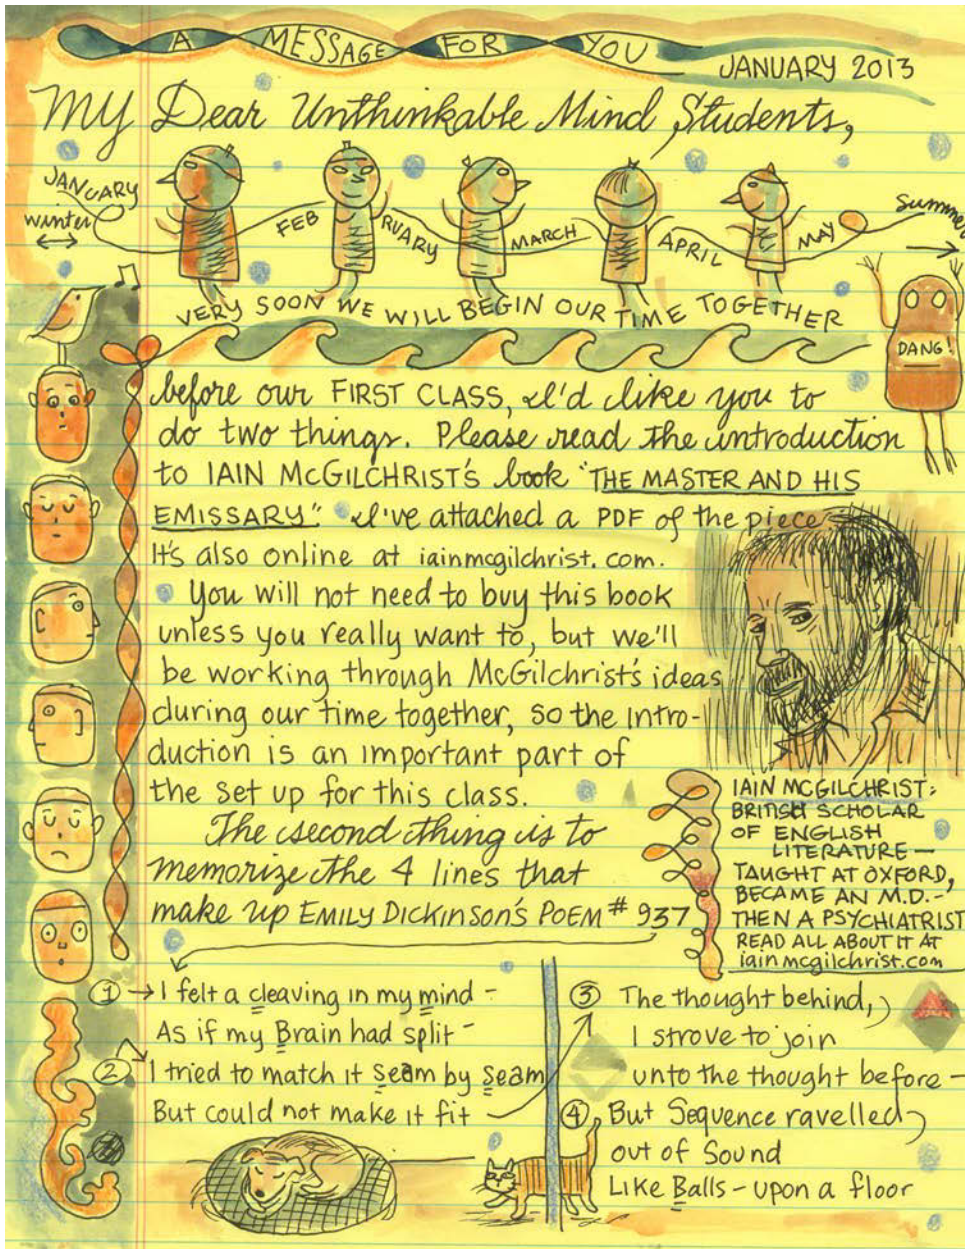 A MESSAGE FOR YOU
JANUARY 2013
My Dear Unthinkable Mind Students,
JANUARY
winter
FEB RUARY MARCH APRIL MAY
summer
VERY SOON WE WILL BEGIN OUR TIME TOGETHER
DANG!
before our FIRST CLASS, I'd like you to
do two things. Please read the introduction
to IAIN McGILCHRIST'S book "THE MASTER AND HIS
EMISSARY." I've attached a PDF of the piece
It's also online at iainmcgilchrist.com.
You will not need to buy this book
unless you really want to, but we'll
be working through McGilchrist's ideas
during our time together, so the intro-
duction is an important part of
the set up for this class.
The second thing is to
memorize the 4 lines that
make up EMILY DICKINSON'S POEM # 937
IAIN MCGILCHRIST:
BRITISH SCHOLAR
OF ENGLISH
LITERATURE —
TAUGHT AT OXFORD,
BECAME AN M.D. -
THEN A PSYCHIATRIST
READ ALL ABOUT IT AT
iainmcgilchrist.com
① I felt a cleaving in my mind -
As if my Brain had split -
② I tried to match it seam by seam
But could not make it fit
③ The thought behind,
I strove to join
unto the thought before -
④ But Sequence ravelled
out of Sound
Like Balls - upon a floor